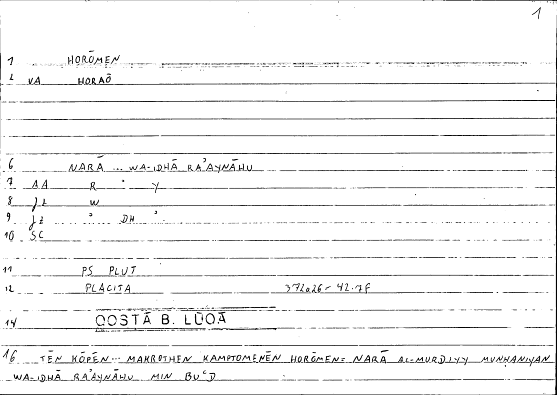 1
1 HORŌMEN
2 VA HORAŌ
6 NARĀ ... WA-IDHĀ RAʾAYNĀHU
7 AA R ʾ Y
8 W
9 ʾ DH ʾ
10 SC
11 PS PLUT
12 PLACITA 372a26-42.7F
14 QOSTĀ B. LŪQĀ
16 TĒN KŌPĒN... MAKROTHEN KAMPTOMENĒN HORŌMEN= NARĀ AL-MURDIYY MUNḤANIYAN
WA-IDHĀ RAʾAYNĀHU MIN BUʿD